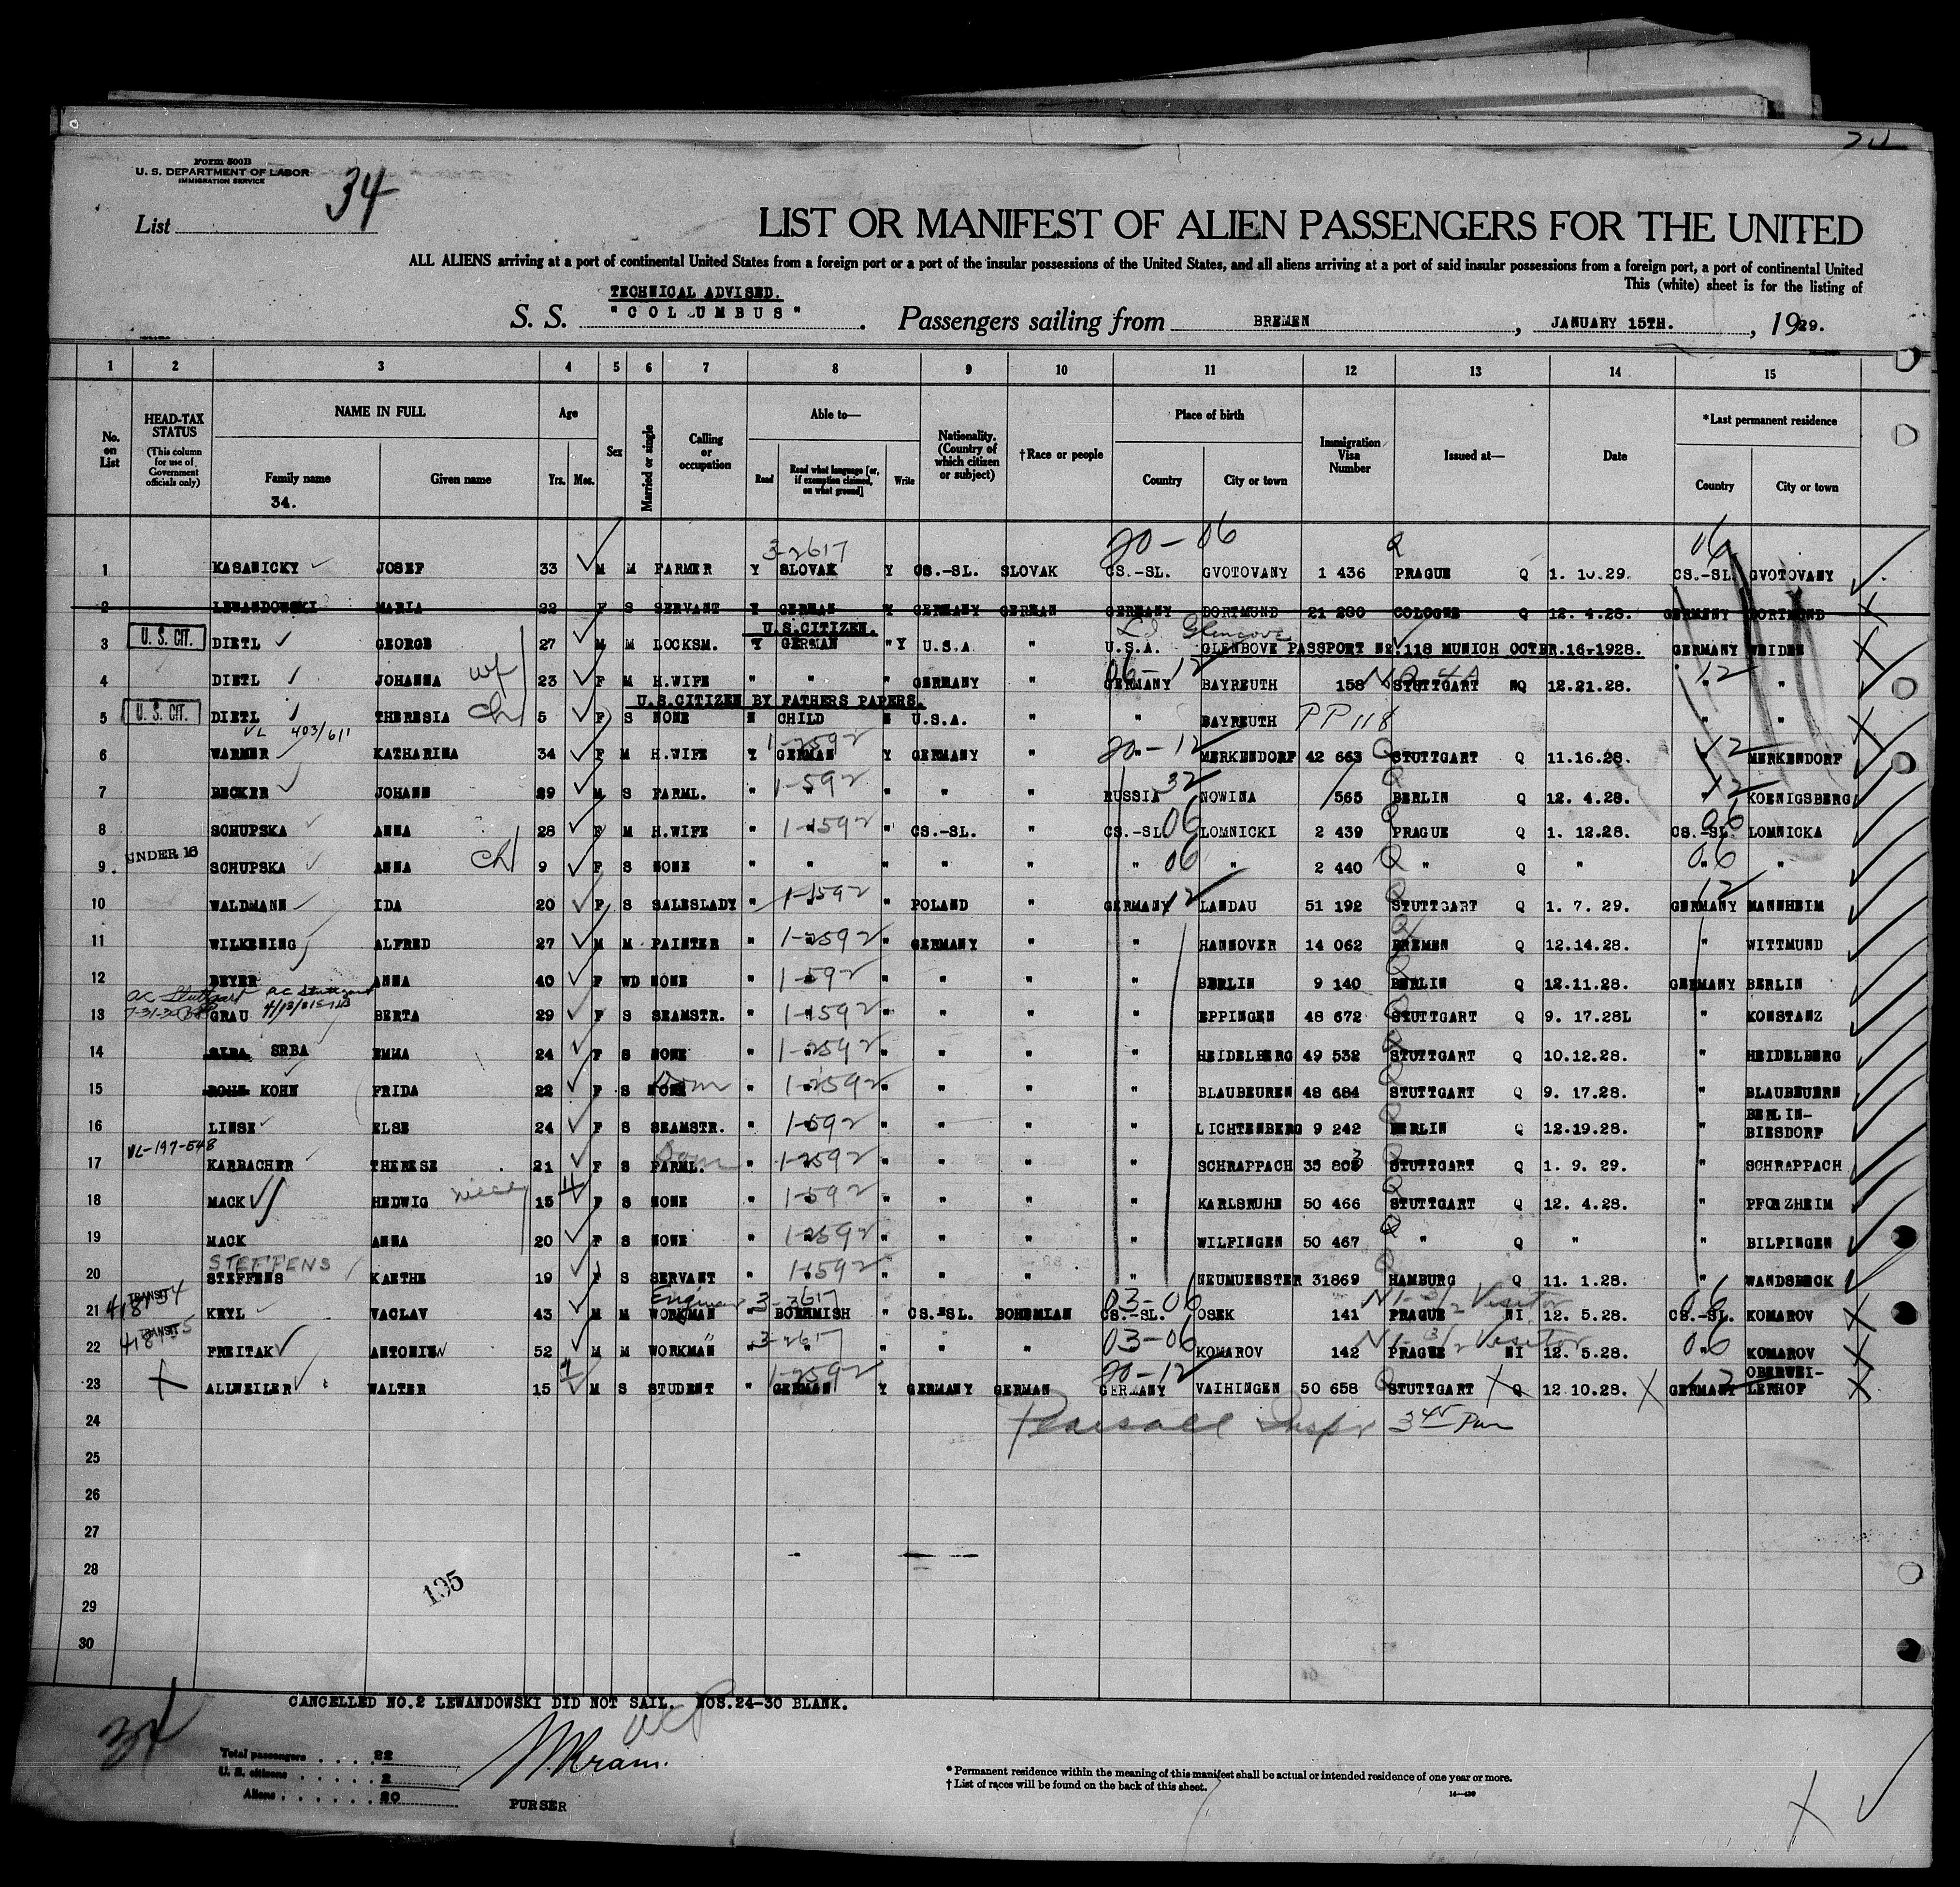 Form 500B
U. S. DEPARTMENT OF LABOR
IMMIGRATION SERVICE
List 34
LIST OR MANIFEST OF ALIEN PASSENGERS FOR THE UNITED
ALL ALIENS arriving at a port of continental United States from a foreign port or a port of the insular possessions of the United States, and all aliens arriving at a port of said insular possessions from a foreign port, a port of continental United
This (white) sheet is for the listing of
TECHNICAL ADVISED.
S. S. "COLUMBUS". Passengers sailing from BREMEN, JANUARY 15TH., 1929.
1 2 3 4 5 6 7 8 9 10 11 12 13 14 15
No. on List
HEAD-TAX STATUS (This column for use of Government officials only)
NAME IN FULL
Family name
34.
Given name
Age
Yrs. Mos.
Sex
Married or single
Calling or occupation
Able to—
Read
Read what language [or, if exemption claimed, on what ground]
Write
Nationality. (Country of which citizen or subject)
†Race or people
Place of birth
Country
City or town
Immigration Visa Number
Issued at—
Date
*Last permanent residence
Country
City or town
3-2617 20-06 Q 06
1 KASANICKY JOSEF 33 M M FARMER Y SLOVAK Y CS.-SL. SLOVAK CS.-SL. GVOTOVANY 1 436 PRAGUE Q 1. 10.29. CS.-SL. GVOTOVANY
2 LEWANDOWSKI MARIA 22 F S SERVANT Y GERMAN Y GERMANY GERMAN GERMANY DORTMUND 21 280 COLOGNE Q 12. 4.28. GERMANY DORTMUND
U.S.CITIZEN. Glencove
3 U. S. CIT. DIETL GEORGE 27 M M LOCKSM. Y GERMAN " Y U.S.A " U.S.A. GLENBOVE PASSPORT NR.118 MUNICH OCTBR.16-1928. GERMANY WEIDEN
wf 06-12 12
4 DIETL JOHANNA 23 F M H.WIFE " " " GERMANY " GERMANY BAYREUTH 158 STUTTGART NQ 12.21.28. " "
U.S.CITIZEN BY FATHERS PAPERS.
5 U. S. CIT. DIETL THERESIA ch 5 F S NONE N CHILD N U.S.A. " " BAYREUTH PP118 " "
VL 403/611 1-2592 20-12 12
6 WARMER KATHARINA 34 F M H.WIFE Y GERMAN Y GERMANY " " MERKENDORF 42 663 Q STUTTGART Q 11.16.28. " MERKENDORF
7 BECKER JOHANN 29 M S FARML. " 1-592 " " " RUSSIA 32 NOWINA 565 BERLIN Q 12. 4.28. " 12 KOENIGSBERG
8 SCHUPSKA ANNA 28 F M H.WIFE " 1-1592 " CS.-SL. " CS.-SL 06 LOMNICKI 2 439 PRAGUE Q 1. 12.28. CS.-SL. 06 LOMNICKA
9 UNDER 16 SCHUPSKA ANNA ch 9 F S NONE " " " " " " 06 " 2 440 Q " Q " " 06 "
10 WALDMANN IDA 20 F S SALESLADY " 1-1592 " POLAND " GERMANY 12 LANDAU 51 192 STUTTGART Q 1. 7. 29. GERMANY 12 MANNHEIM
11 WILKENING ALFRED 27 M M PAINTER " 1-2592 " GERMANY " " HANNOVER 14 062 BREMEN Q 12.14.28. " WITTMUND
12 BEYER ANNA 40 F WD NONE " 1-592 " " " " BERLIN 9 140 BERLIN Q 12.11.28. GERMANY BERLIN
13 GRAU BERTA 29 F S SEAMSTR. " 1-1592 " " " " EPPINGEN 48 672 STUTTGART Q 9. 17.28L " KONSTANZ
14 SRBA EMMA 24 F S NONE " 1-2592 " " " " HEIDELBERG 49 532 STUTTGART Q 10.12.28. " HEIDELBERG
15 KOHN FRIDA 22 F S NONE Dom " 1-2592 " " " " BLAUBEUREN 48 684 STUTTGART Q 9. 17.28. " BLAUBEUERN
16 LINSE ELSE 24 F S SEAMSTR. " 1-592 " " " " LICHTENBERG 9 242 BERLIN Q 12.19.28. " BERLIN-BIESDORF
VL-197-548
17 KARBACHER THERESE 21 F S FARML. Dom " 1-2592 " " " " SCHRAPPACH 35 803 STUTTGART Q 1. 9. 29. " SCHRAPPACH
18 MACK HEDWIG niece 15 F S NONE " 1-592 " " " " KARLSRUHE 50 466 STUTTGART Q 12. 4.28. " PFORZHEIM
19 MACK ANNA 20 F S NONE " 1-2592 " " " " WILFINGEN 50 467 " Q " " BILFINGEN
STEFFENS
20 STEFFENS KAETHE 19 F S SERVANT " 1-1592 " " " " NEUMUENSTER 31869 HAMBURG Q 11. 1.28. " WANDSBECK
TRANSIT 3-2617 03-06 Visitor 06
21 KRYL VACLAV 43 M M WORKMAN " BOEHMISH " CS.-SL. BOHEMIAN CS.-SL. OSEK 141 PRAGUE NI 12. 5.28. CS.-SL. KOMAROV
TRANSIT 3-2617 03-06 Visitor 06
22 FREITAK ANTONIN 52 M M WORKMAN " " " " " KOMAROV 142 PRAGUE NI 12. 5.28. " KOMAROV
1-2592 20-12 12
23 ALLWEILER WALTER 15 M S STUDENT " GERMAN Y GERMANY GERMAN GERMANY VAIHINGEN 50 658 STUTTGART Q 12 10.28. GERMANY OBERWEI-LERHOF
24 Pearsall Inspr 3 45 Pm
25
26
27
28
29
30
195
CANCELLED NO.2 LEWANDOWSKI DID NOT SAIL. NOS.24-30 BLANK.
34
Total passengers . . . . 22
U. S. citizens . . . . . 2
Aliens . . . . . . 20
PURSER
* Permanent residence within the meaning of this manifest shall be actual or intended residence of one year or more.
† List of races will be found on the back of this sheet.